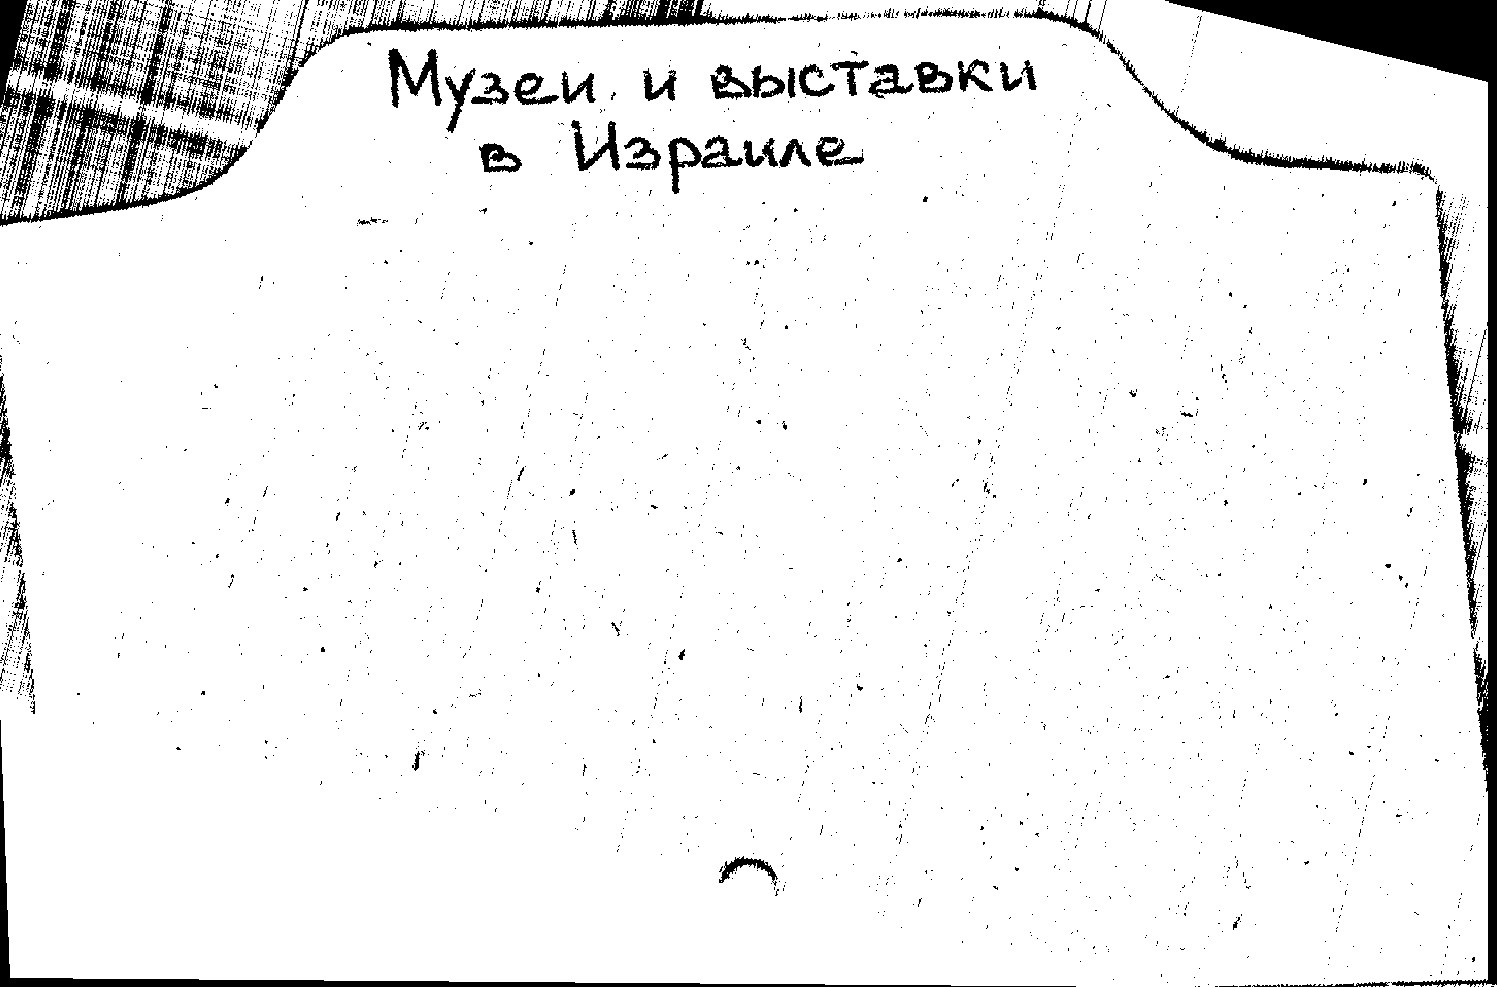 Музеи и выставки
в Израиле